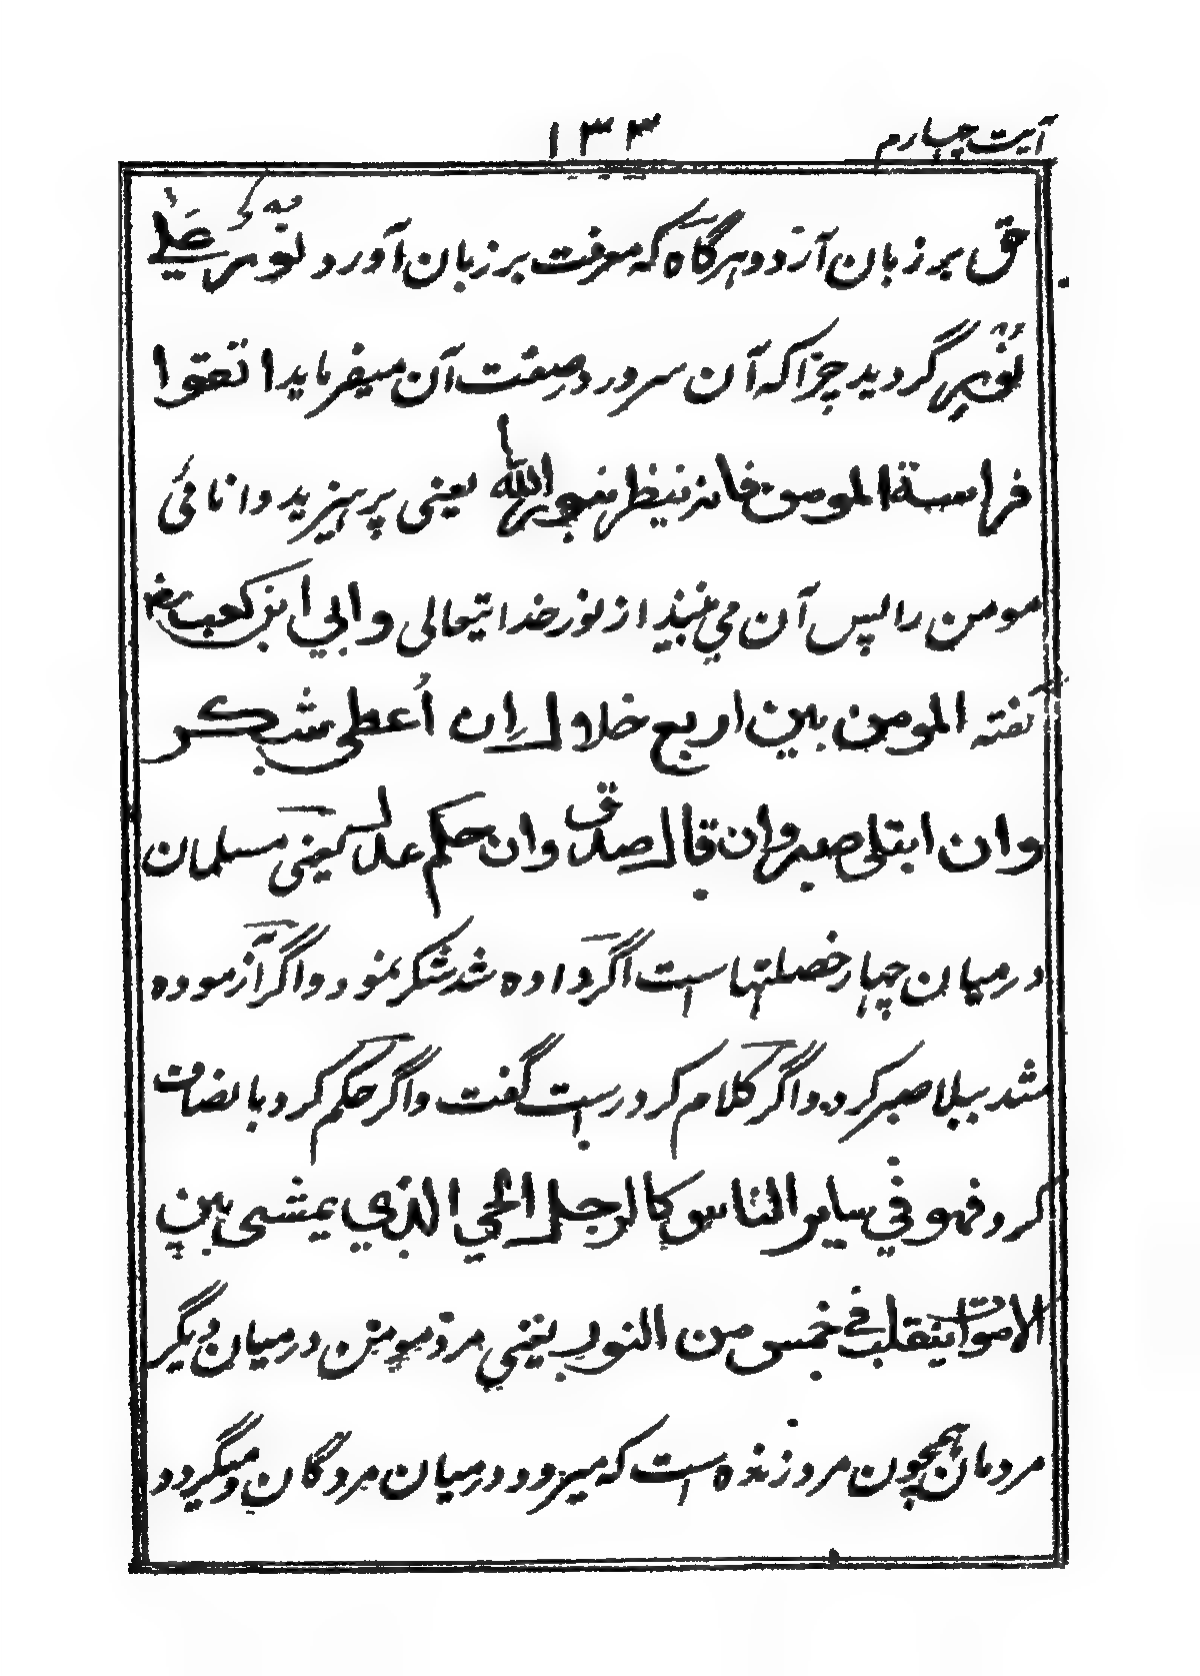 آیت چہارم ۱۳۳
حق بر زبان آرد و ہرگاہ کہ معرفت بر زبان آورد نور علی
نور گردید چرا کہ آن سرور در صفت آن میفرماید اتقوا
فراسة المومن فانہ ینظر بنور الله یعنی پرہیزید دانائی
مومن را پس آن می بیند از نور خدا تعالی و ابی ابن کعب رض
گفته المومن بین اربع خلال اِن اُعطی شکر
وان ابتلی صبر وان قال صدق وان حکم عدل یعنی مسلمان
درمیان چہار خصلتہا است اگر دادہ شد شکر نمود و اگر آزمودہ
شد ببلا صبر کرد و اگر کلام کرد راست گفت و اگر حکم کرد بانصاف
کرد فہو فی سایر الناس کالرجل الحی الذی یمشی بین
الاموات ینقلب فی خمس من النور یعنی مرد مومن درمیان دیگر
مردمان ہمچون مرد زندہ است کہ میرود درمیان مردگان و میگردد